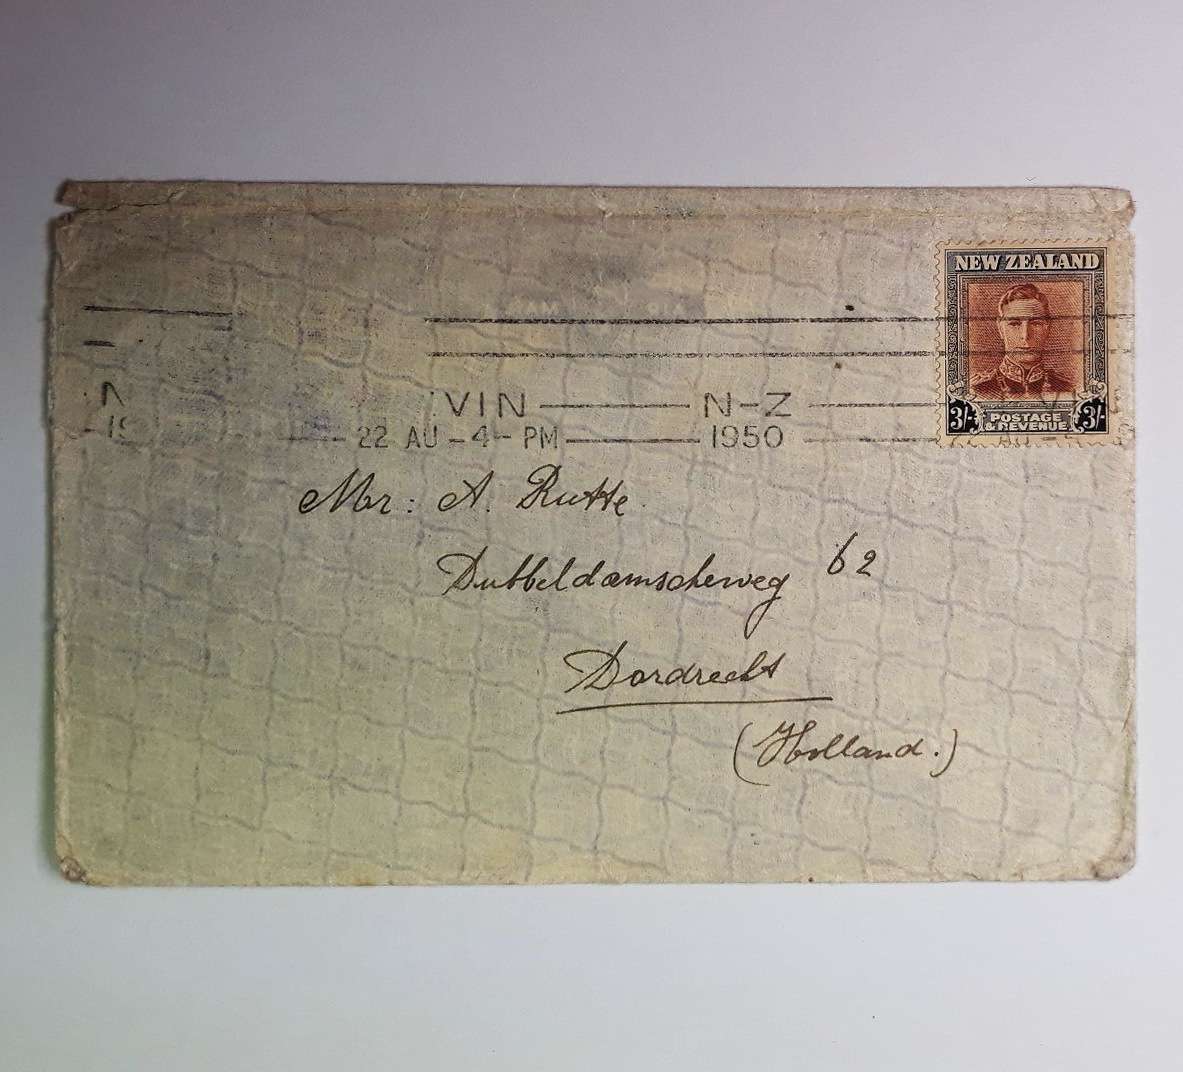 NEW ZEALAND
3/- POSTAGE & REVENUE 3/-
VIN N-Z
22 AU - 4 - PM 1950
Mr: A. Rutte.
Dubbeldamscheweg 62
Dordrecht
(Holland.)